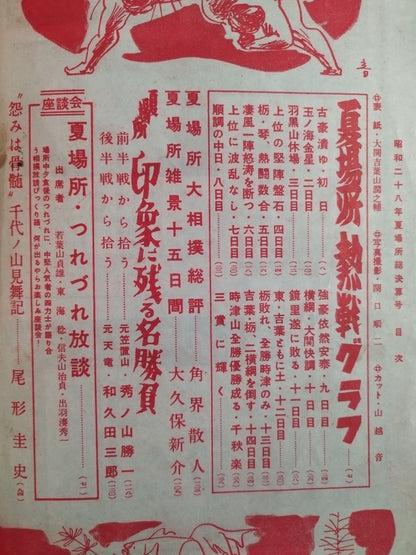 昭和二十八年夏場所総決算号 目次
表紙・大関吉葉山潤之輔 写真撮影・関口順二 カット・山越音
夏場所熱戦グラフ
古豪潰ゆ・初日
玉ノ海金星・二日目
羽黒山休場・三日目
上位の堅陣盤石・四日目
栃・琴、熱闘数合・五日目
凄風一陣怒濤を断つ・六日目
上位に波乱なし・七日目
順調の中日・八日目
強豪依然安泰・九日目
横綱・大関快調・十日目
鏡里遂に敗る・十一日目
東・吉葉ともに土・十二日目
栃敗れ、全勝時津のみ・十三日目
吉葉・栃、二横綱を倒す・十四日目
時津山全勝優勝成る・千秋楽
三賞に輝く
夏場所大相撲総評 角界散人
夏場所雑景十五日間 大久保新介
夏場所 印象に残る名勝負
前半戦から拾う 元笠置山・秀ノ山勝一
後半戦から拾う 元天竜・和久田三郎
座談会
夏場所・つれづれ放談
出席者 若葉山貞雄・東海稔・信夫山治貞・出羽湊秀一
場所中夕食後のつれづれに、中堅人気者の四力士が語り合
う相撲放談びっくり箱、何が出るやらお楽しみ座談会!
“怨みは骨髄”千代ノ山見舞記 尾形圭史